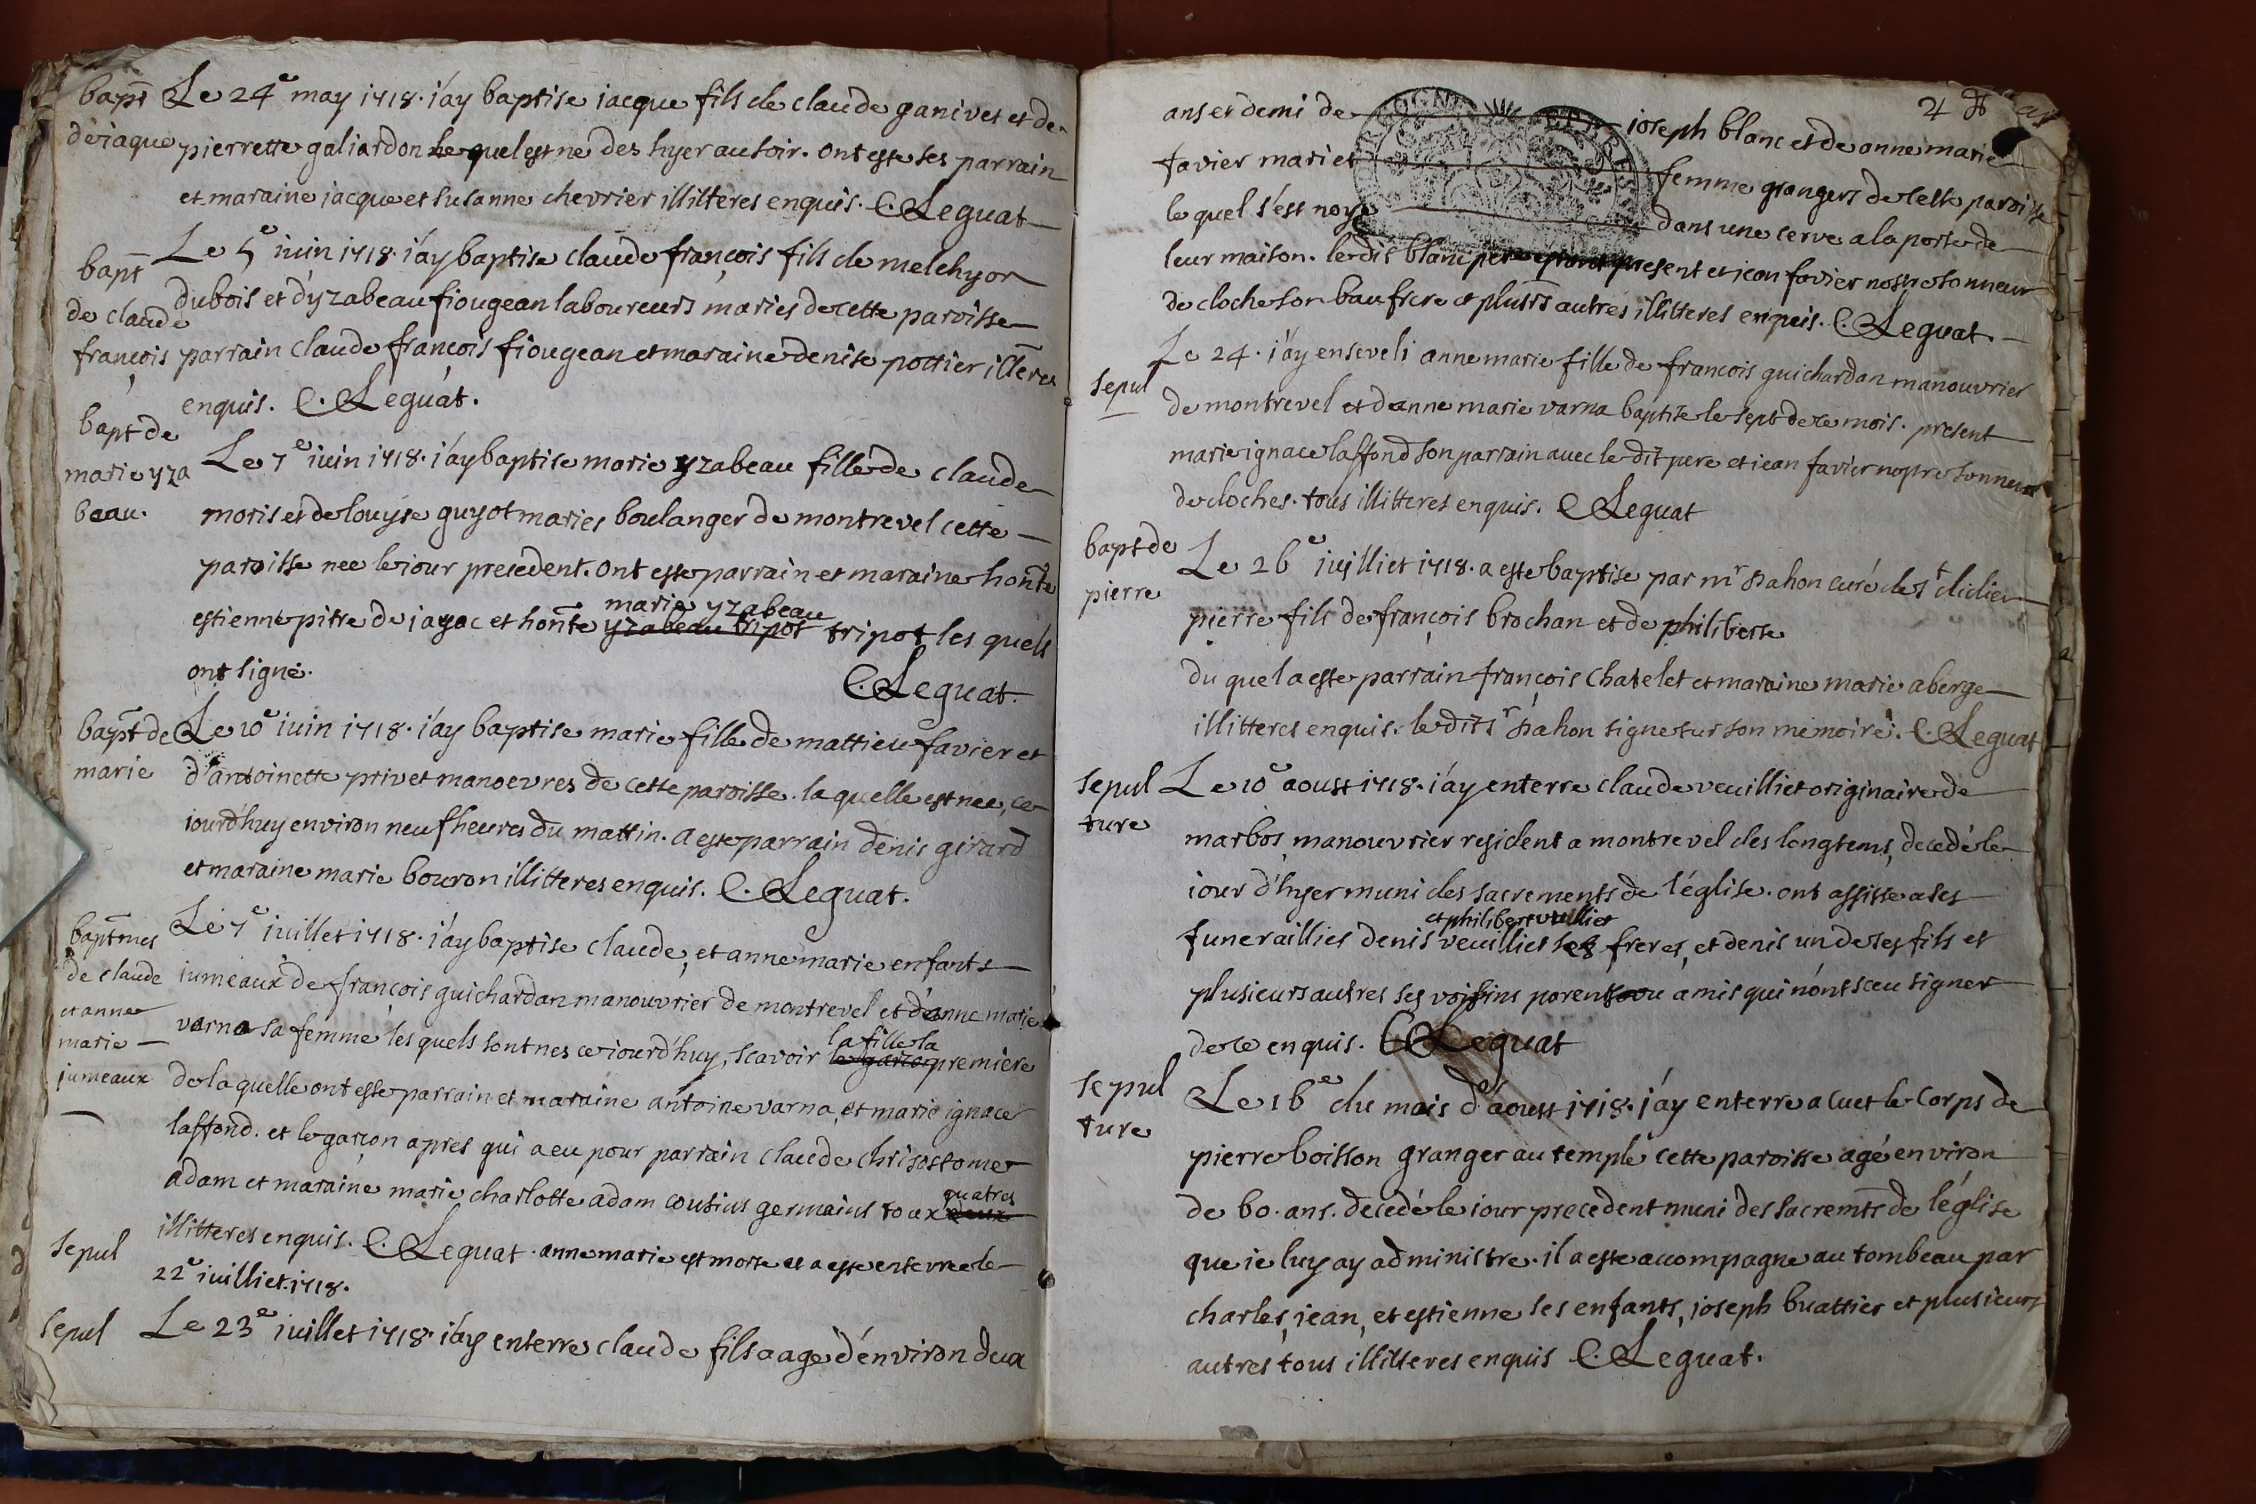 bapt̄ Le 24e may 1718. j'ay baptise jacque fils de claude ganivet et de
de jaque pierrette galiardon le quel est ne des hyer au soir. ont este ses parrain
et maraine jacque et susanne chevrier illitteres enquis. C. Leguat
bapt̄ Le 5e juin 1718. j'ay baptise claude françois fils de melchyor
de claude dubois et d'yzabeau fiougean laboureurs maries de cette paroisse
françois parrain claude françois fiougean et maraine denise pottier illēres
enquis. C. Leguat.
bapt de
marie yza Le 7e juin 1718. j'ay baptise marie yzabeau fille de claude
beau. moris et de louyse guyot maries boulanger de montrevel cette
paroisse nee le jour precedent. ont este parrain et maraine hon̄te
marie yzabeau
estienne pitre de jayac et hon̄te yzabeau tripot tripot les quels
ont signé.
C. Leguat.
bapt̄ de Le 10e juin 1718. j'ay baptise marie fille de mattieu favier et
marie d'antoinette privet manoevres de cette paroisse. la quelle est nee, ce
jourd'huy environ neuf heures du mattin. a este parrain denis girard
et maraine marie bouron illitteres enquis. C. Leguat.
bapt̄mes Le 7e juillet 1718. j'ay baptise claude, et anne marie enfants
de claude jumeaux de françois guichardan manouvrier de montrevel et d'anne marie
et anne
marie varna sa femme les quels sont nes ce jourd'huy, scavoir la fille la
le garçon premiere
jumeaux de laquelle ont este parrain et maraine antoine varna, et marie ignace
laffond. et le garçon apres qui a eu pour parrain claude chrisostome
adam et maraine marie charlotte adam cousins germains quatres
illitteres enquis. C. Leguat. anne marie est morte et a este enterree le
sepul 22e juilliet 1718.
sepul Le 23e juillet 1718. j'ay enterre claude fils aage d'environ deux
24
ans et demi de joseph blanc et de anne marie
favier maries femme grangers de cette paroisse
le quel s'est noyé dans une serve a la porte de
leur maison. le dit blanc pere present et jean favier nostre sonneur
de cloche son baufrere et plus̄rs autres illitteres enquis. C. Leguat.
sepul Le 24. j'ay enseveli anne marie fille de francois guichardan manouvrier
de montrevel et d'anne marie varna baptize le sept de ce mois. present
marie ignace laffond son parrain avec le dit pere et jean favier nostre sonneur
de cloches. tous illitteres enquis. C Leguat
bapt de Le 26e juilliet 1718. a este baptise par mr Dahon curé de st didier
pierre pierre fils de françois brochan et de philiberte
du quel a este parrain françois chatelet et maraine marie aberge
illitteres enquis. le dit sr Dahon signe sur son memoire. C. Leguat
sepul Le 10e aoust 1718. j'ay enterre claude veuilliet originaire de
ture marbos, manouvrier resident a montrevel des longtems, decedé le
jour d'hyer muni des sacrements de l'église. ont assiste a ses
et philibert veuilliet
funeraillies denis veuilliet ses freres, et denis un de ses fils et
plusieurs autres ses voisins parents ou amis qui n'ont sceu signer
de ce enquis. C Leguat
sepul Le 16e du mois d'aoust 1718. j'ay enterre a cuet le corps de
ture pierre boisson granger au temple cette paroisse agé environ
de 60. ans. decedé le jour precedent muni des sacrem̄ts de l'église
que je luy ay administre. il a este accompagne au tombeau par
charles, jean, et estienne ses enfants, joseph buattier et plusieurs
autres tous illitteres enquis C. Leguat.